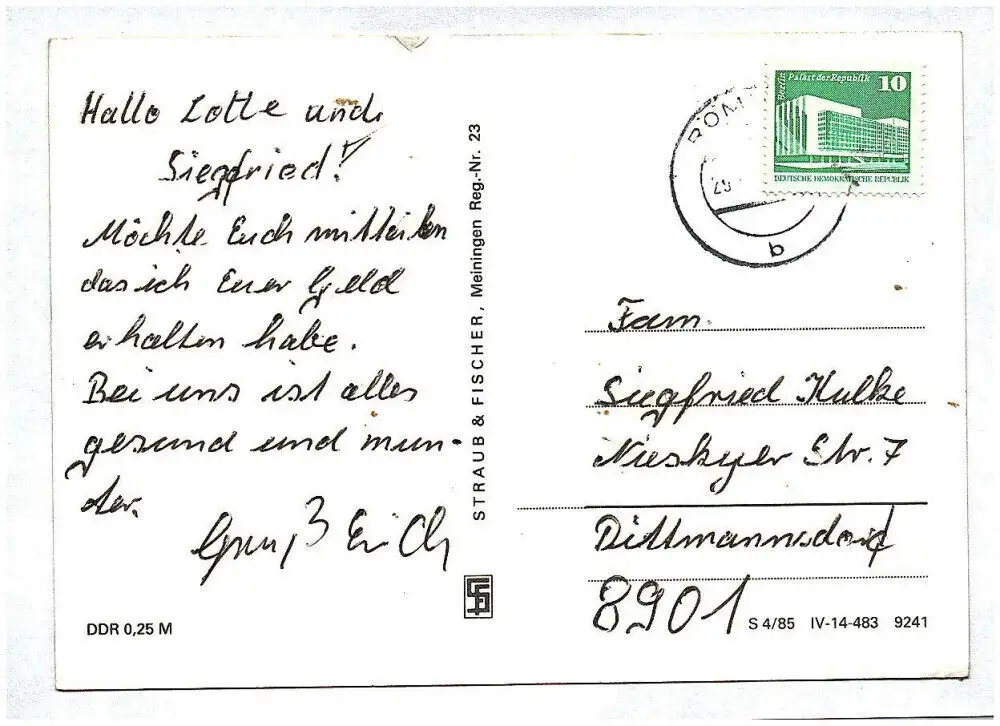 Hallo Lotte und
Siegfried!
Möchte Euch mitteilen
das ich Euer Geld
erhalten habe.
Bei uns ist alles
gesund und mun-
ter.
Gruß Erich
DDR 0,25 M
STRAUB & FISCHER, Meiningen Reg.-Nr. 23
Berlin
Palast der Republik
10
DEUTSCHE DEMOKRATISCHE REPUBLIK
b
Fam.
Siegfried Kulke
Nieskyer Str. 7
Dittmannsdorf
8901
S 4/85 IV-14-483 9241